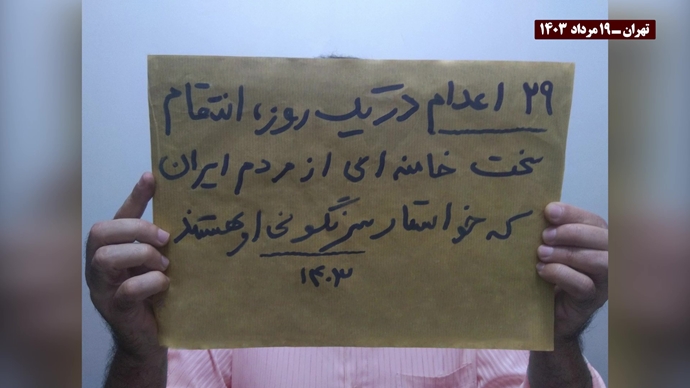 تهران ـ ۱۹ مرداد ۱۴۰۳
۲۹ اعدام در یک روز، انتقام
سخت خامنه ای از مردم ایران
که خواستار سرنگونی او هستند
۱۴۰۳